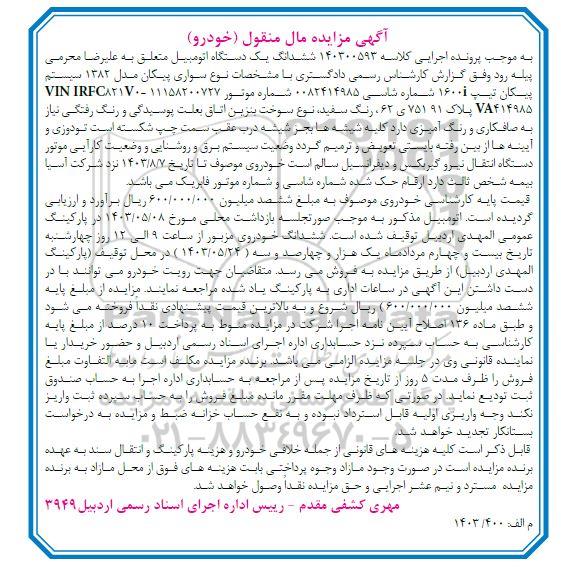 آگهی مزایده مال منقول (خودرو)
به موجب پرونده اجرایی کلاسه ۱۴۰۳۰۰۵۹۳ ششدانگ یک دستگاه اتومبیل متعلق به علیرضا محرمی
پیله رود وفق گزارش کارشناس رسمی دادگستری با مشخصات نوع سواری پیکان مدل ۱۳۸۲ سیستم
پیکان تیپ ۱۶۰۰i شماره شاسی ۰۰۸۲۴۱۴۹۸۵ شماره موتور ۱۱۱۵۸۲۰۰۷۲۷ - VIN IRFC۸۲۱V۰
VA۴۱۴۹۸۵ پلاک ۹۱ ۷۵۱ ی ۶۲ ، رنگ سفید، نوع سوخت بنزین اتاق بعلت پوسیدگی و رنگ رفتگی نیاز
به صافکاری و رنگ آمیزی دارد کلیه شیشه ها بجز شیشه درب عقب سمت چپ شکسته است تودوزی و
آیینه ها از بین رفته بایستی تعویض و ترمیم گردد وضعیت سیستم برق و روشنایی و وضعیت کارآیی موتور
دستگاه انتقال نیرو گیربکس و دیفرانسیل سالم است خودروی موصوف تا تاریخ ۱۴۰۳/۸/۷ نزد شرکت آسیا
بیمه شخص ثالث دارد ارقام حک شده شماره شاسی و شماره موتور فابریک می باشد.
قیمت پایه کارشناسی خودروی موصوف به مبلغ ششصد میلیون ۶۰۰/۰۰۰/۰۰۰ ریال برآورد و ارزیابی
گردیده است. اتومبیل مذکور به موجب صورتجلسه بازداشت محلی مورخ ۱۴۰۳/۰۵/۰۸ در پارکینگ
عمومی المهدی اردبیل توقیف شده است. ششدانگ خودروی مزبور از ساعت ۹ الی ۱۲ روز چهارشنبه
تاریخ بیست و چهارم مردادماه یک هزار و چهارصد و سه ( ۱۴۰۳/۰۵/۲۴ ) در محل توقیف (پارکینگ
المهدی اردبیل) از طریق مزایده به فروش می رسد. متقاضیان جهت رویت خودرو می توانند با در
دست داشتن این آگهی در ساعات اداری به پارکینگ یاد شده مراجعه نمایند. مزایده از مبلغ پایه
ششصد میلیون (۶۰۰/۰۰۰/۰۰۰) ریال شروع و به بالاترین قیمت پیشنهادی نقداً فروخته می شود
و طبق ماده ۱۳۶ اصلاح آیین نامه اجرا شرکت در مزایده منوط به پرداخت ۱۰ درصد از مبلغ پایه
کارشناسی به حساب سپرده نزد حسابداری اداره اجرای اسناد رسمی اردبیل و حضور خریدار یا
نماینده قانونی وی در جلسه مزایده الزامی می باشد. برنده مزایده مکلف است مابه التفاوت مبلغ
فروش را ظرف مدت ۵ روز از تاریخ مزایده پس از مراجعه به حسابداری اداره اجرا به حساب صندوق
ثبت تودیع نماید در صورتی که ظرف مهلت مقرر مانده مبلغ فروش را به حساب سپرده ثبت واریز
نکند وجه واریزی اولیه قابل استرداد نبوده و به نفع حساب خزانه ضبط و مزایده به درخواست
بستانکار تجدید خواهد شد.
قابل ذکر است کلیه هزینه های قانونی از جمله خلافی خودرو و هزینه پارکینگ و انتقال سند به عهده
برنده مزایده است در صورت وجود مازاد وجوه پرداختی بابت هزینه های فوق از محل مازاد به برنده
مزایده مسترد و نیم عشر اجرایی و حق مزایده نقداً وصول خواهد شد.
مهری کشفی مقدم - رییس اداره اجرای اسناد رسمی اردبیل ۳۹۴۹
م الف: ۴۰۰/ ۱۴۰۳
ParsNamadData
۰۲۱-۸۸۳۴۹۶۷۰-۵